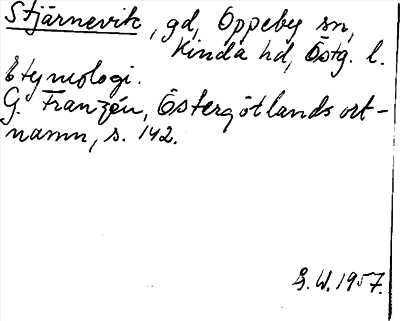 Stjärnevik, gd, Oppeby sn,
Kinda hd, Östg. l.
Etymologi.
G. Franzén, Östergötlands ort-
namn, s. 142.
G. W. 1957.